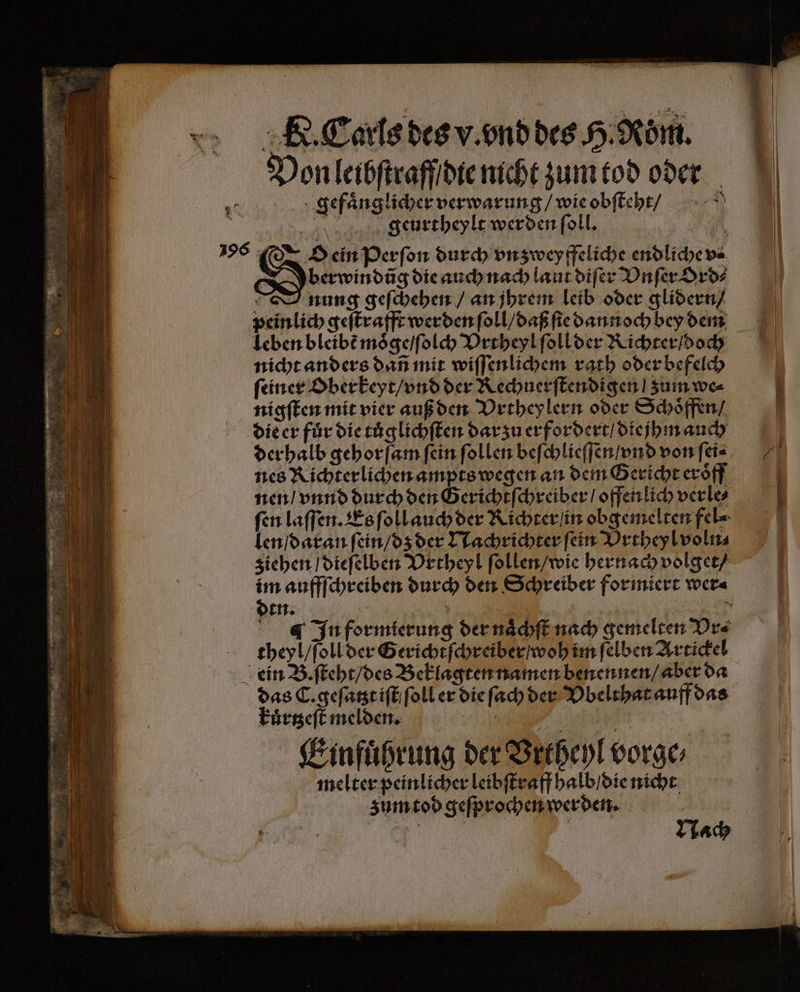 K. Carls des v. vnd des H. Röm.
Von leibſtraff/ die nicht zum tod oder
gefaͤnglicher verwarung / wie obſteht/
geurtheylt werden ſoll.
196 SO ein Perſon durch vnzweyffeliche endliche v⸗
berwindũg die auch nach laut diſer Vnſer Ord⸗
nung geſchehen / an jhrem leib oder glidern/
peinlich geſtrafft werden ſoll/ daß ſie dannoch bey dem
leben bleibẽ moͤge/ ſolch Vrtheyl ſoll der Richter/ doch
nicht anders dañ mit wiſſenlichem rath oder befelch
ſeiner Oberkeyt/ vnd der Rechuerſtendigen / zum we⸗
nigſten mit vier auß den Vrtheylern oder Schoͤffen/
die er fuͤr die tuͤglichſten darzu erfordert/ die jhm auch
derhalb gehorſam ſein ſollen beſchlieſſen/ vnd von ſei⸗
nes Richterlichen ampts wegen an dem Gericht eroͤff
nen/ vnnd durch den Gerichtſchreiber / offenlich verle⸗
ſen laſſen. Es ſoll auch der Richter/ in obgemelten fel⸗
len/ daran ſein/ dz der Nachrichter ſein Vrtheyl voln⸗
ziehen / dieſelben Vrtheyl ſollen/ wie hernach volget/
im auffſchreiben durch den Schreiber formiert wer⸗
den.
¶ In formierung der naͤchſt nach gemelten Vr⸗
theyl/ ſoll der Gerichtſchreiber/ woh im ſelben Artickel
ein B. ſteht/ des Beklagten namen benennen/ aber da
das C. geſatzt iſt/ ſoll er die ſach der Vbelthat auff das
kuͤrtzeſt melden.
Einfuͤhrung der Vrtheyl vorge⸗
melter peinlicher leibſtraff halb/ die nicht
zum tod geſprochen werden.
Nach